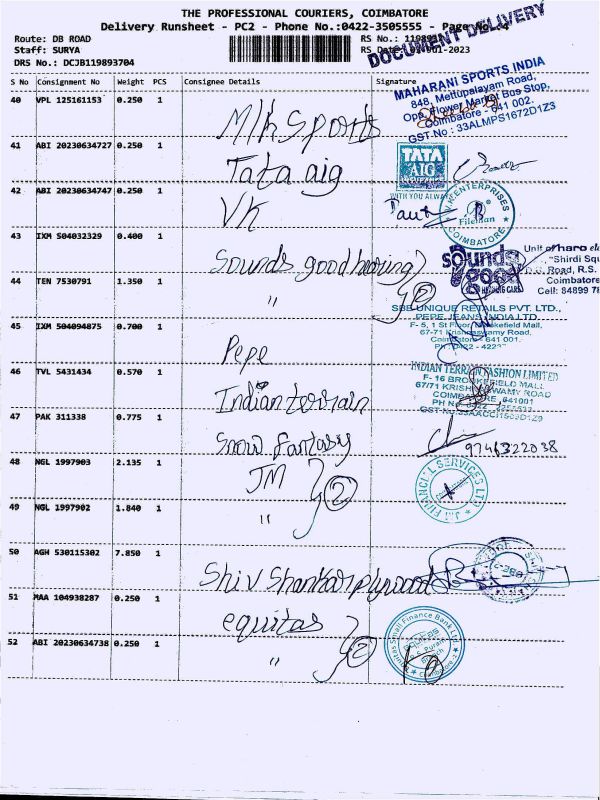 THE PROFESSIONAL COURIERS, COIMBATORE
Delivery Runsheet - PC2 - Phone No.:0422-3505555 - Page No.:4
Route: DB ROAD
Staff: SURYA
DRS No.: DCJB119893704
RS No.: 1198937
RS Date: -2023
DOCUMENT DELIVERY
S No Consignment No Weight PCS Consignee Details Signature
40 VPL 125161153 0.250 1 M/h Sports
MAHARANI SPORTS INDIA
848, Mettupalayam Road,
Opp. Flower Market Bus Stop,
Coimbatore - 641 002.
GST No : 33ALMPS1672D1Z3
41 ABI 20230634727 0.250 1 Tata aig
TATA
AIG
WITH YOU ALWAYS
42 ABI 20230634747 0.250 1 VK
V.K. ENTERPRISES
COIMBATORE
43 IXM S04032329 0.400 1 Sounds good hearing
sounds
good
HEARING CARE
"Shirdi
Road, R.S.
Coimbatore
Cell: 84899
44 TEN 7530791 1.350 1 " 2
SBE UNIQUE RETAILS PVT. LTD.,
PEPE JEANS INDIA LTD.
F- 5, 1 St Floor, Brookefield Mall,
67-71 Krishnaswamy Road,
Coimbatore - 641 001.
45 IXM 504094875 0.700 1 Pepe
46 TVL 5431434 0.570 1 Indian terrain
INDIAN TERRAIN FASHION LIMITED
F- 16 BROOKEFIELD MALL
67/71 KRISHNASWAMY ROAD
COIMBATORE, 641001
47 PAK 311338 0.775 1 Snow fantasy
9746322038
48 NGL 1997903 2.135 1 JM
J.M. FINANCIAL SERVICES LTD
49 NGL 1997902 1.840 1 " 2
50 AGH 530115302 7.850 1 Shiv Shankar plywood
51 MAA 104938287 0.250 1 equitas
52 ABI 20230634738 0.250 1 " 2
Equitas Small Finance Bank Ltd.
R.S. Puram
Branch
Coimbatore-2